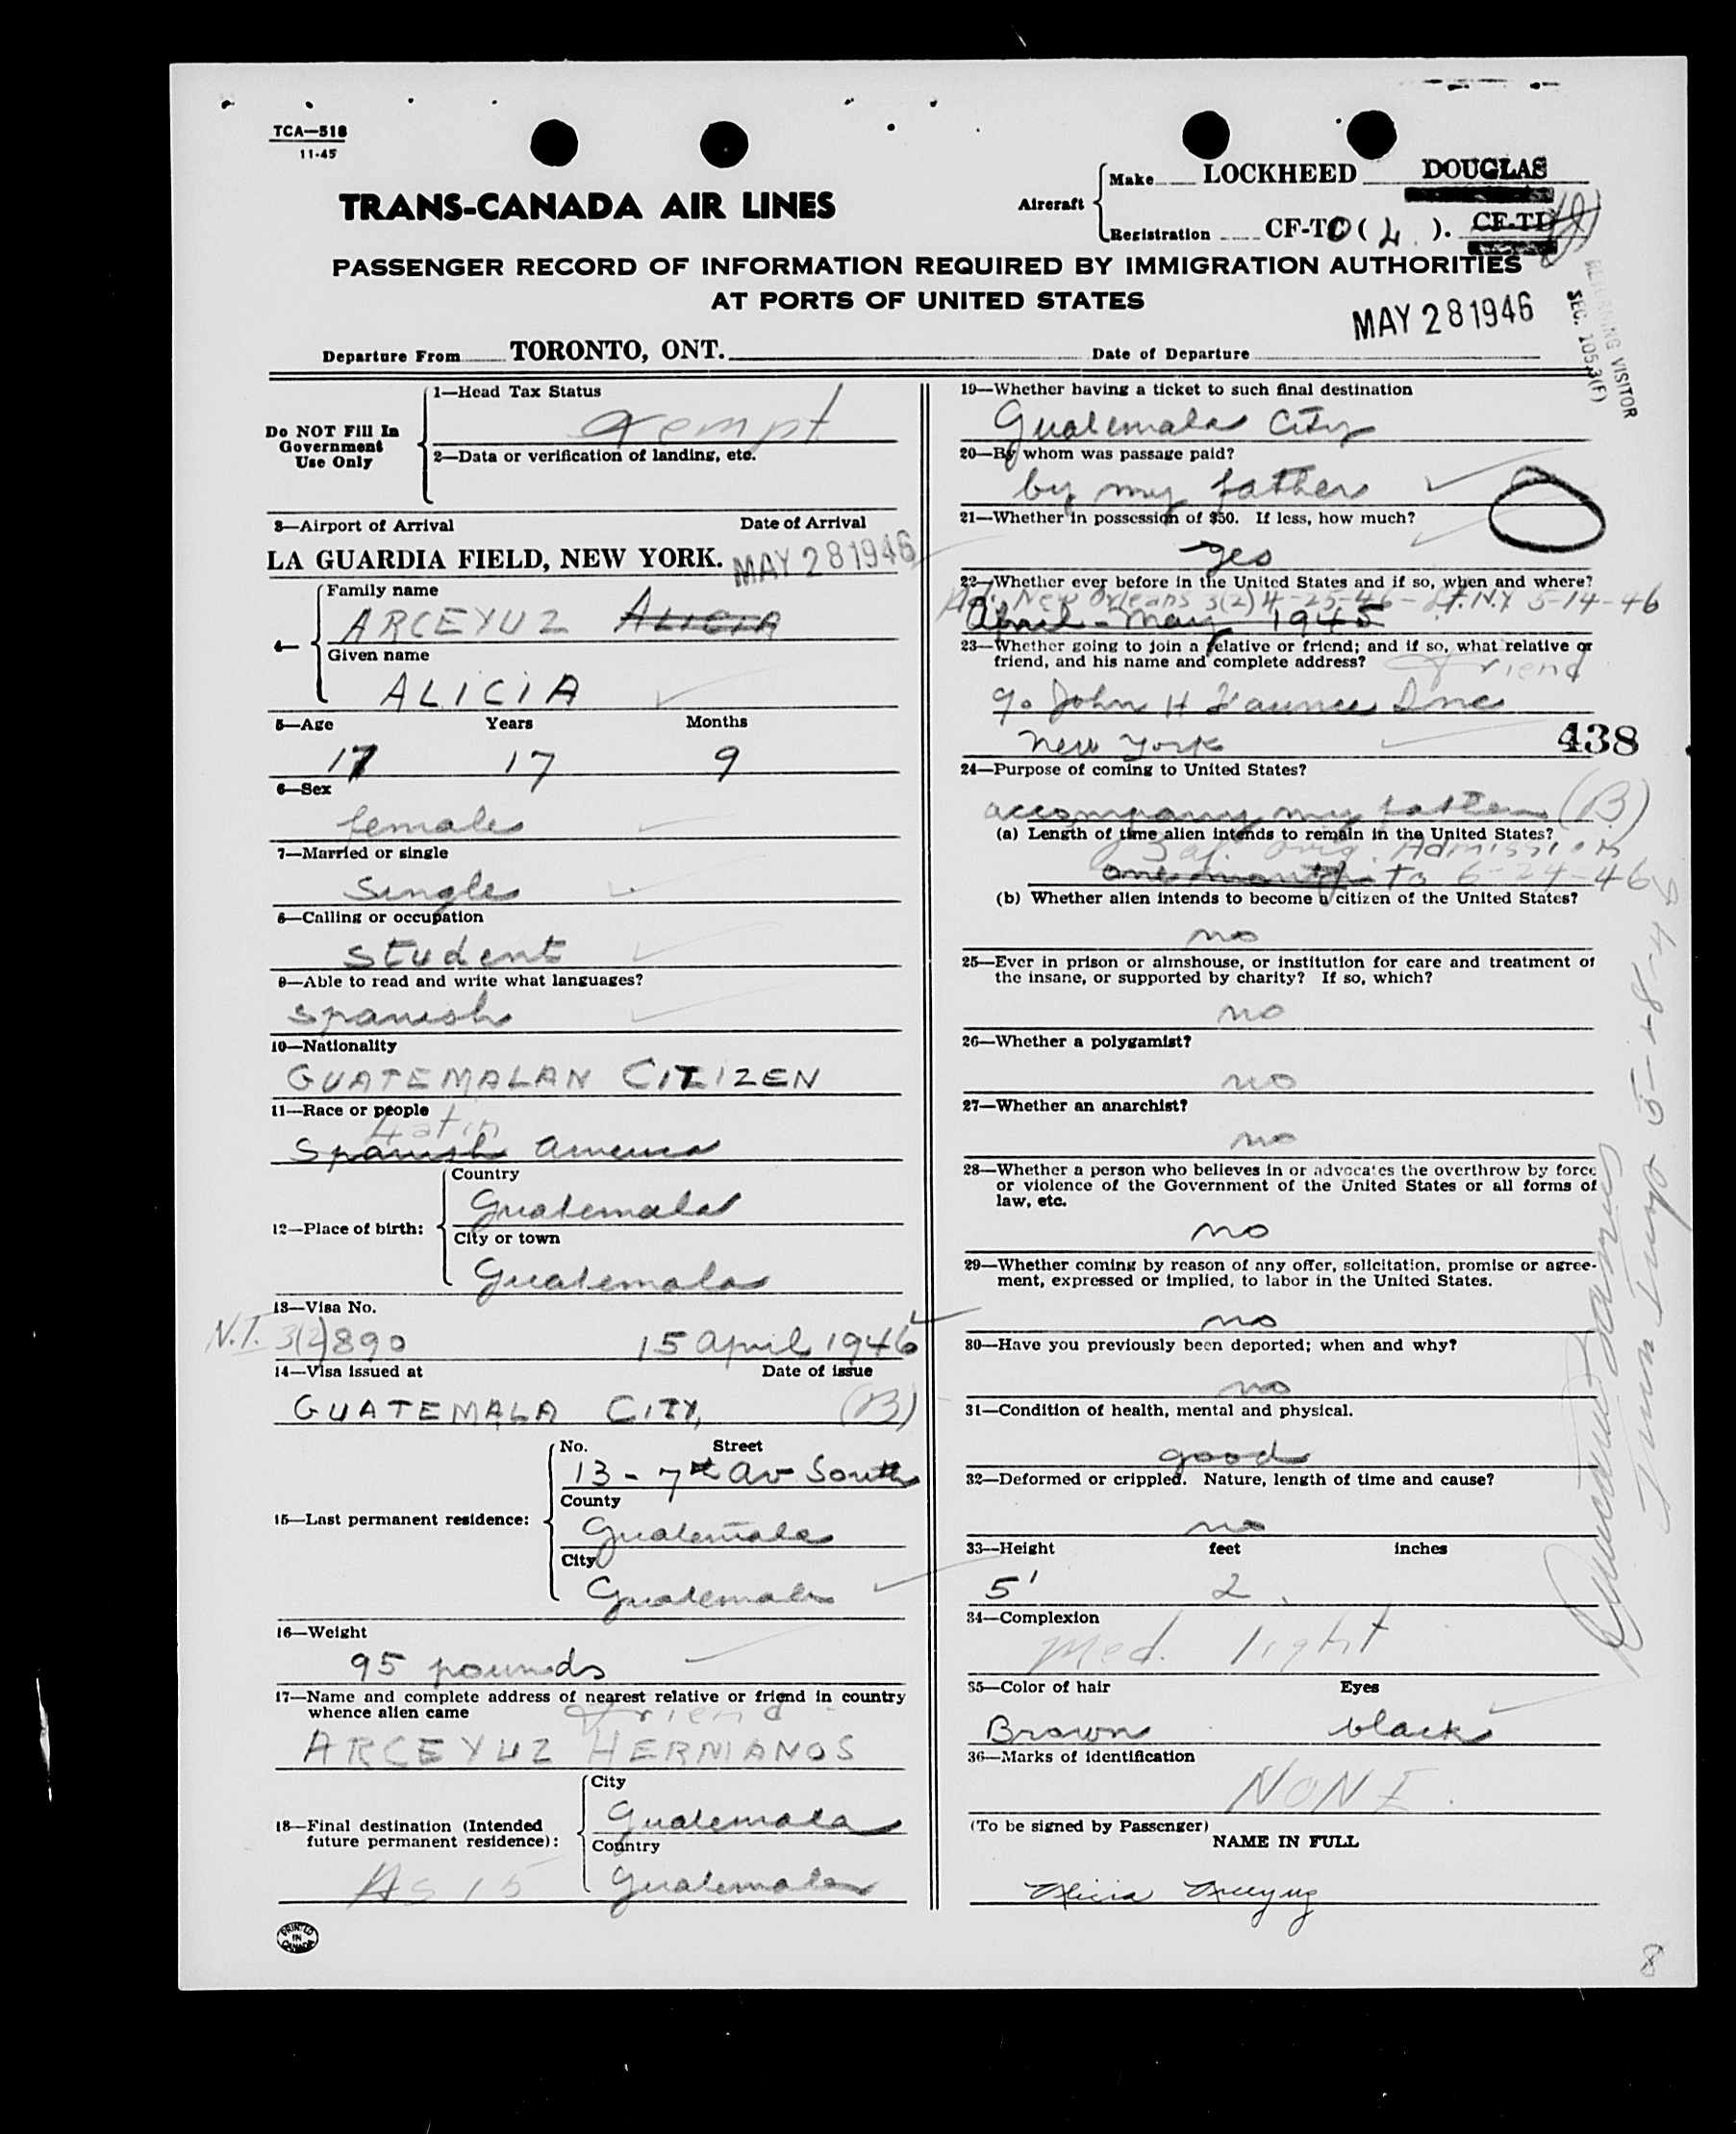 TCA—518
11-45
TRANS-CANADA AIR LINES
Aircraft
Make LOCKHEED DOUGLAS
Registration CF-TC ( L ). CF-TD
PASSENGER RECORD OF INFORMATION REQUIRED BY IMMIGRATION AUTHORITIES
AT PORTS OF UNITED STATES
MAY 28 1946
RETURNING VISITOR
SEC. 105.3(F)
Departure From TORONTO, ONT. Date of Departure
Do NOT Fill In
Government
Use Only
1—Head Tax Status
Exempt
2—Data or verification of landing, etc.
3—Airport of Arrival Date of Arrival
LA GUARDIA FIELD, NEW YORK. MAY 28 1946
4—
Family name
ARCEYUZ ALICIA
Given name
ALICIA
5—Age Years Months
17 17 9
6—Sex
female
7—Married or single
Single
8—Calling or occupation
student
9—Able to read and write what languages?
Spanish
10—Nationality
GUATEMALAN CITIZEN
11—Race or people
Latin
Spanish America
12—Place of birth:
Country
Guatemala
City or town
Guatemala
13—Visa No.
N.I. 3(2) 890 15 April 1946
14—Visa issued at Date of issue
GUATEMALA CITY, (B)
15—Last permanent residence:
No. Street
13 - 7th Av South
County
Guatemala
City
Guatemala
16—Weight
95 pounds
17—Name and complete address of nearest relative or friend in country
whence alien came
friend
ARCEYUZ HERMANOS
18—Final destination (Intended
future permanent residence):
As 15
City
Guatemala
Country
Guatemala
PRINTED
IN
CANADA
19—Whether having a ticket to such final destination
Guatemala City
20—By whom was passage paid?
by my father
21—Whether in possession of $50. If less, how much?
yes
22—Whether ever before in the United States and if so, when and where?
New Orleans 3(2) 4-25-46 - N.Y 5-14-46
April - May 1945
23—Whether going to join a relative or friend; and if so, what relative or
friend, and his name and complete address?
friend
c/o John H Inc
New York
438
24—Purpose of coming to United States?
accompany my father (B)
(a) Length of time alien intends to remain in the United States?
Bal. orig. Admission
one month to 6-24-46
(b) Whether alien intends to become a citizen of the United States?
no
25—Ever in prison or almshouse, or institution for care and treatment of
the insane, or supported by charity? If so, which?
no
26—Whether a polygamist?
no
27—Whether an anarchist?
no
28—Whether a person who believes in or advocates the overthrow by force
or violence of the Government of the United States or all forms of
law, etc.
no
29—Whether coming by reason of any offer, solicitation, promise or agree-
ment, expressed or implied, to labor in the United States.
no
30—Have you previously been deported; when and why?
no
31—Condition of health, mental and physical.
good
32—Deformed or crippled. Nature, length of time and cause?
no
33—Height feet inches
5' 2
34—Complexion
Med. light
35—Color of hair Eyes
Brown black
36—Marks of identification
NONE
(To be signed by Passenger)
NAME IN FULL
Alicia Arceyuz
8